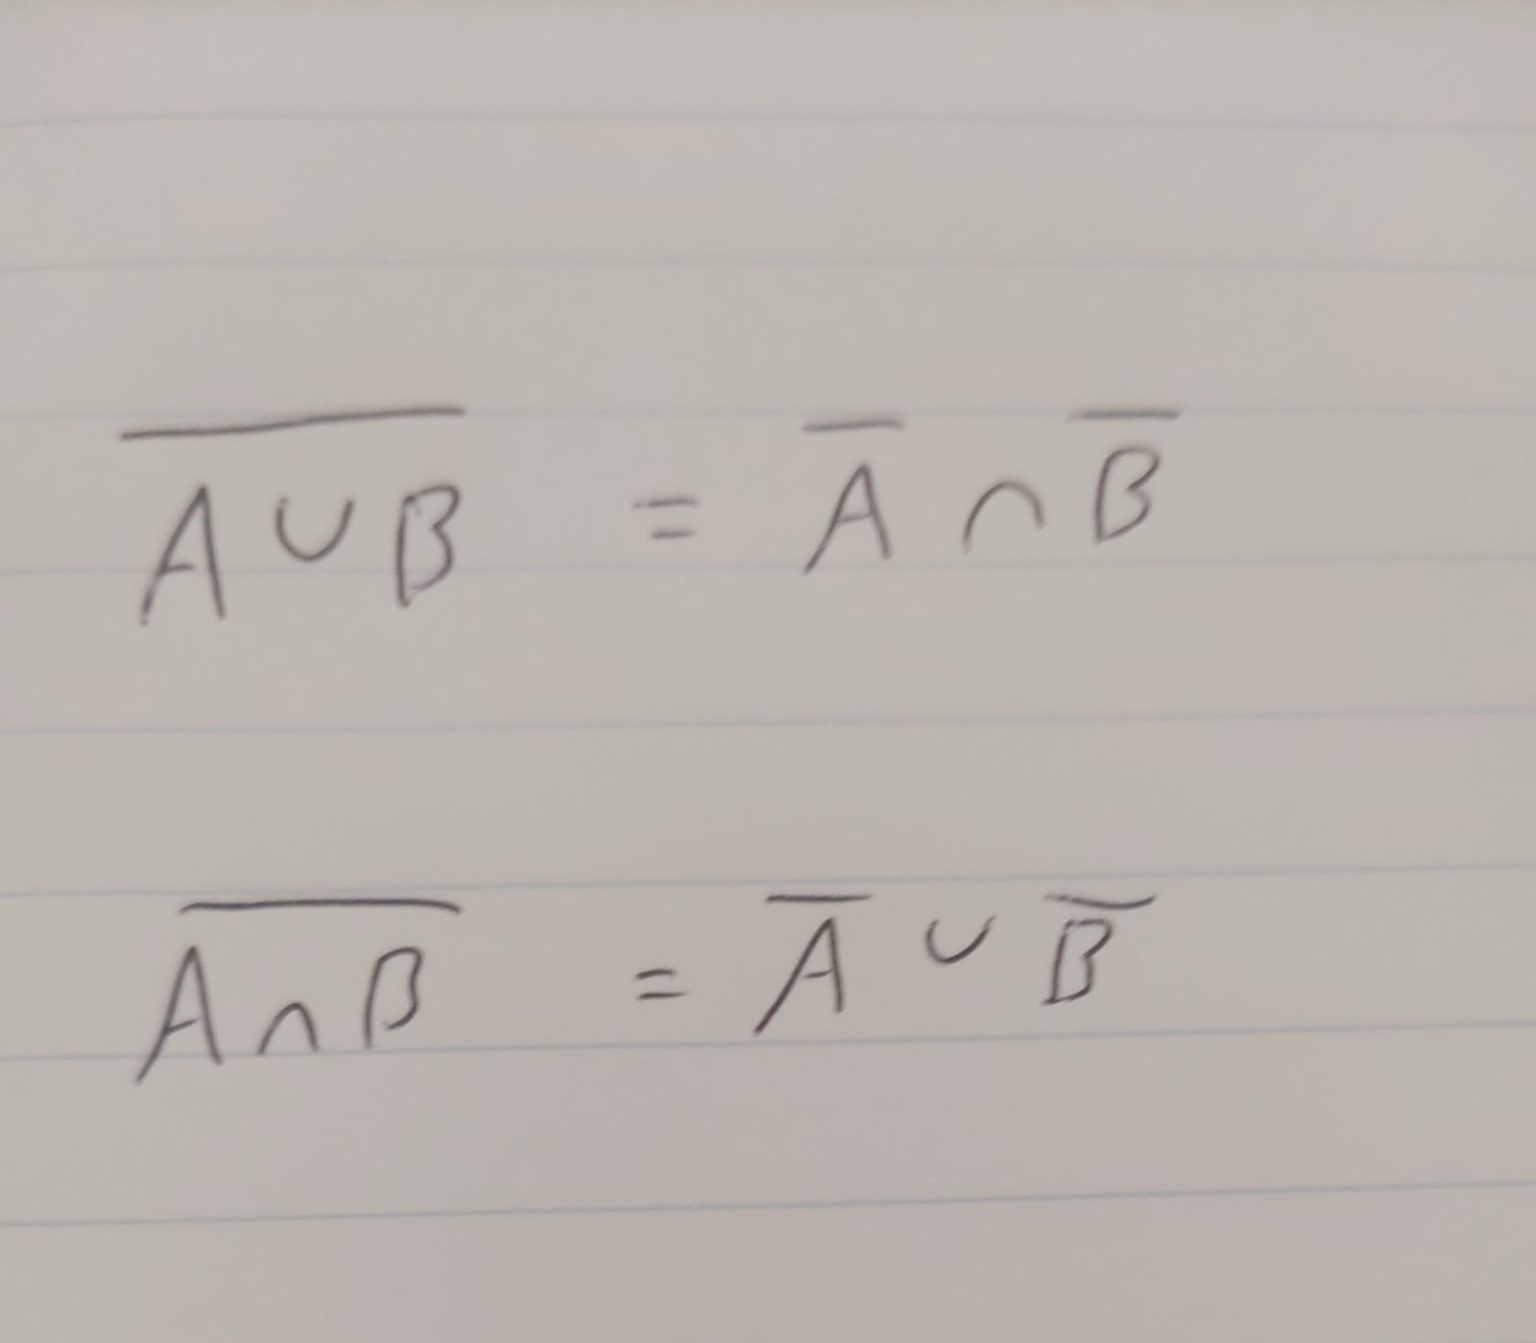 A̅ ̅∪̅ ̅B̅ = A̅ ∩ B̅
A̅ ̅∩̅ ̅B̅ = A̅ ∪ B̅